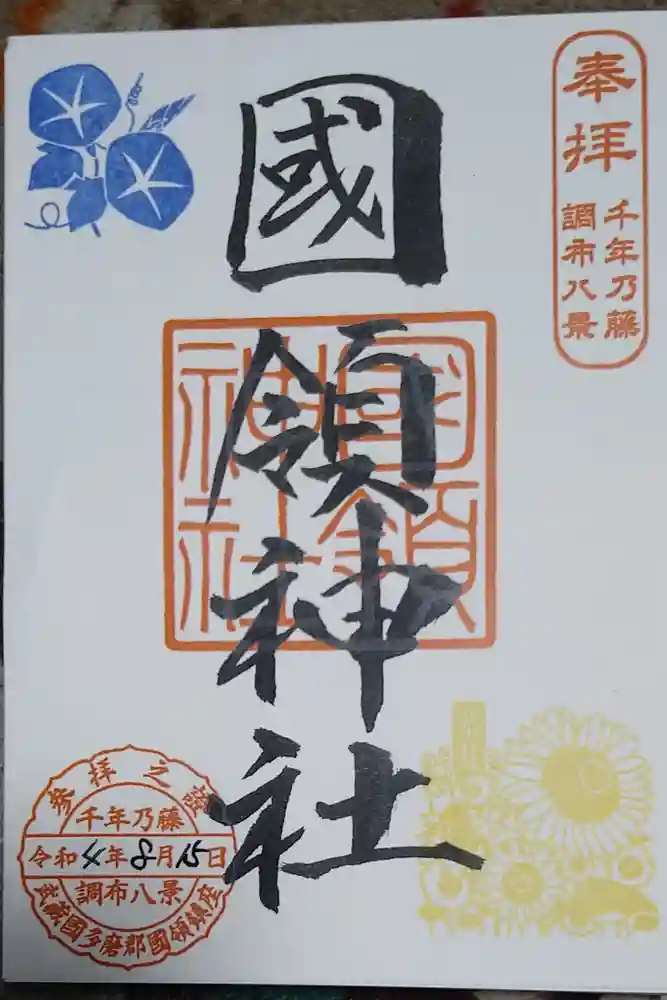 奉拝
千年乃藤
調布八景
國領神社
國領
神社
参拝之證
千年乃藤
令和4年8月15日
調布八景
武蔵國多磨郡國領鎮座